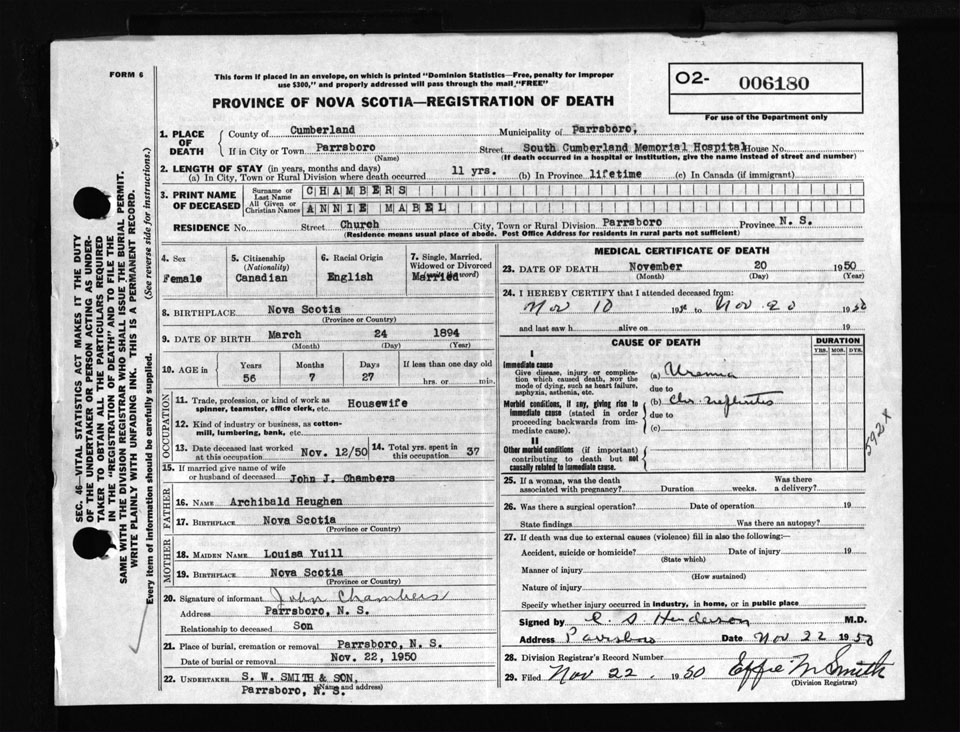 FORM 6
This form if placed in an envelope, on which is printed "Dominion Statistics—Free, penalty for improper
use $300," and properly addressed will pass through the mail "FREE"
O2- 006180
For use of the Department only
PROVINCE OF NOVA SCOTIA—REGISTRATION OF DEATH
1. PLACE OF DEATH
County of Cumberland Municipality of Parrsboro,
If in City or Town Parrsboro Street South Cumberland Memorial Hospital House No.
(Name) (If death occurred in a hospital or institution, give the name instead of street and number)
2. LENGTH OF STAY (in years, months and days)
(a) In City, Town or Rural Division where death occurred 11 yrs. (b) In Province lifetime (c) In Canada (if immigrant)
3. PRINT NAME OF DECEASED
Surname or Last Name CHAMBERS
All Given or Christian Names ANNIE MABEL
RESIDENCE No. Street Church City, Town or Rural Division Parrsboro Province N. S.
(Residence means usual place of abode. Post Office Address for residents in rural parts not sufficient)
4. Sex Female
5. Citizenship (Nationality) Canadian
6. Racial Origin English
7. Single, Married, Widowed or Divorced Married
8. BIRTHPLACE Nova Scotia
(Province or Country)
9. DATE OF BIRTH March 24 1894
(Month) (Day) (Year)
10. AGE in Years Months Days If less than one day old
56 7 27 hrs. or min.
OCCUPATION
11. Trade, profession, or kind of work as
spinner, teamster, office clerk, etc. Housewife
12. Kind of industry or business, as cotton-
mill, lumbering, bank, etc.
13. Date deceased last worked
at this occupation Nov. 12/50
14. Total yrs. spent in
this occupation 37
15. If married give name of wife
or husband of deceased John J. Chambers
FATHER
16. NAME Archibald Heughen
17. BIRTHPLACE Nova Scotia
(Province or Country)
MOTHER
18. MAIDEN NAME Louisa Yuill
19. BIRTHPLACE Nova Scotia
(Province or Country)
20. Signature of informant John Chambers
Address Parrsboro, N. S.
Relationship to deceased Son
21. Place of burial, cremation or removal Parrsboro, N. S.
Date of burial or removal Nov. 22, 1950
22. UNDERTAKER S. W. SMITH & SON,
(Name and address)
Parrsboro, N. S.
MEDICAL CERTIFICATE OF DEATH
23. DATE OF DEATH November 20 1950
(Month) (Day) (Year)
24. I HEREBY CERTIFY that I attended deceased from:
Nov 10 19 to Nov 20 1950
and last saw h alive on 19
CAUSE OF DEATH
DURATION
YRS. MOS. DYS.
I
Immediate cause
Give disease, injury or complica-
tion which caused death, NOT the
mode of dying, such as heart failure,
asphyxia, asthenia, etc.
(a) Uremia
due to
Morbid conditions, if any, giving rise to
immediate cause (stated in order
proceeding backwards from im-
mediate cause).
(b) Chr. nefhritis
due to
(c)
II
Other morbid conditions (if important)
contributing to death but not
causally related to immediate cause.
592 X
25. If a woman, was the death
associated with pregnancy? Duration weeks. Was there
a delivery?
26. Was there a surgical operation? Date of operation 19
State findings Was there an autopsy?
27. If death was due to external causes (violence) fill in also the following:—
Accident, suicide or homicide? Date of injury 19
(State which)
Manner of injury
(How sustained)
Nature of injury
Specify whether injury occurred in industry, in home, or in public place
Signed by C. S. Henderson M.D.
Address Parrsboro Date Nov 22 1950
28. Division Registrar's Record Number
29. Filed Nov 22. 1950 Effie M Smith
(Division Registrar)
SEC. 46—VITAL STATISTICS ACT MAKES IT THE DUTY
OF THE UNDERTAKER OR PERSON ACTING AS UNDER-
TAKER TO OBTAIN ALL THE PARTICULARS REQUIRED
IN THE "REGISTRATION OF DEATH" AND TO FILE THE
SAME WITH THE DIVISION REGISTRAR WHO SHALL ISSUE THE BURIAL PERMIT.
WRITE PLAINLY WITH UNFADING INK. THIS IS A PERMANENT RECORD.
Every item of information should be carefully supplied. (See reverse side for instructions.)